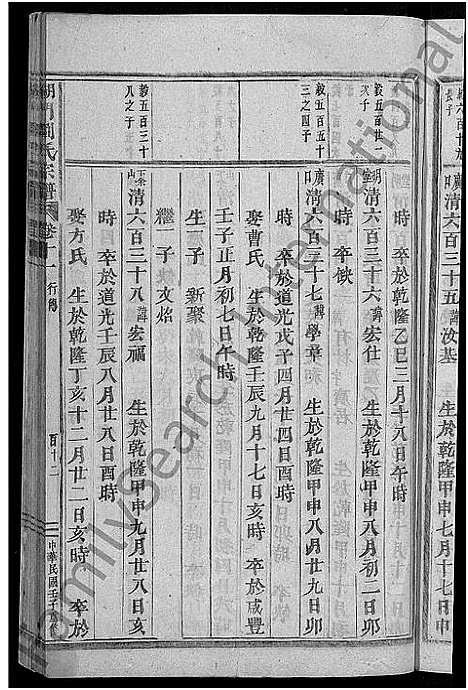 長子
清六百三十五 諱 汝基 生於乾隆甲申七月十七日申
時 卒於乾隆乙巳三月十八日午時
毅五百廿一
次子
清六百三十六 諱 宏仕 生於乾隆甲申八月初二日卯
時 卒缺
毅五百五十
三之四子
清六百三十七 諱 學章 生於乾隆甲申八月廿九日卯
時 卒於道光戊子四月廿四日酉時
娶曹氏 生於乾隆壬辰九月十七日亥時 卒於咸豐
壬子正月初七日午時
生一子 新聚
繼一子 文焰
毅五百三十
八之子
清六百三十八 諱 宏福 生於乾隆甲申九月廿八日亥
時 卒於道光壬辰八月廿八日酉時
娶方氏 生於乾隆丁亥十二月廿二日亥時 卒於
周氏宗譜 卷十一 行傳
百十二
中華民國壬子
FamilySearch International